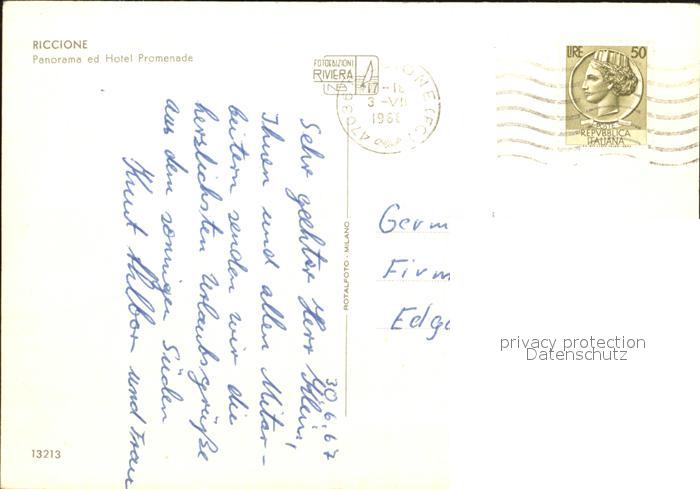 RICCIONE
Panorama ed Hotel Promenade
FOTOEDIZIONI
RIVIERA
17-18
3-VII
LIRE 50
POSTE
REPVBBLICA
ITALIANA
30.6.67
Sehr geehrter Herr Klein!
Ihnen und allen Mitar-
beitern senden wir die
herzlichsten Urlaubsgrüße
aus dem sonnigen Süden
Knut und Frau
ROTALFOTO - MILANO
Germ
Firm
Edga
privacy protection
Datenschutz
13213